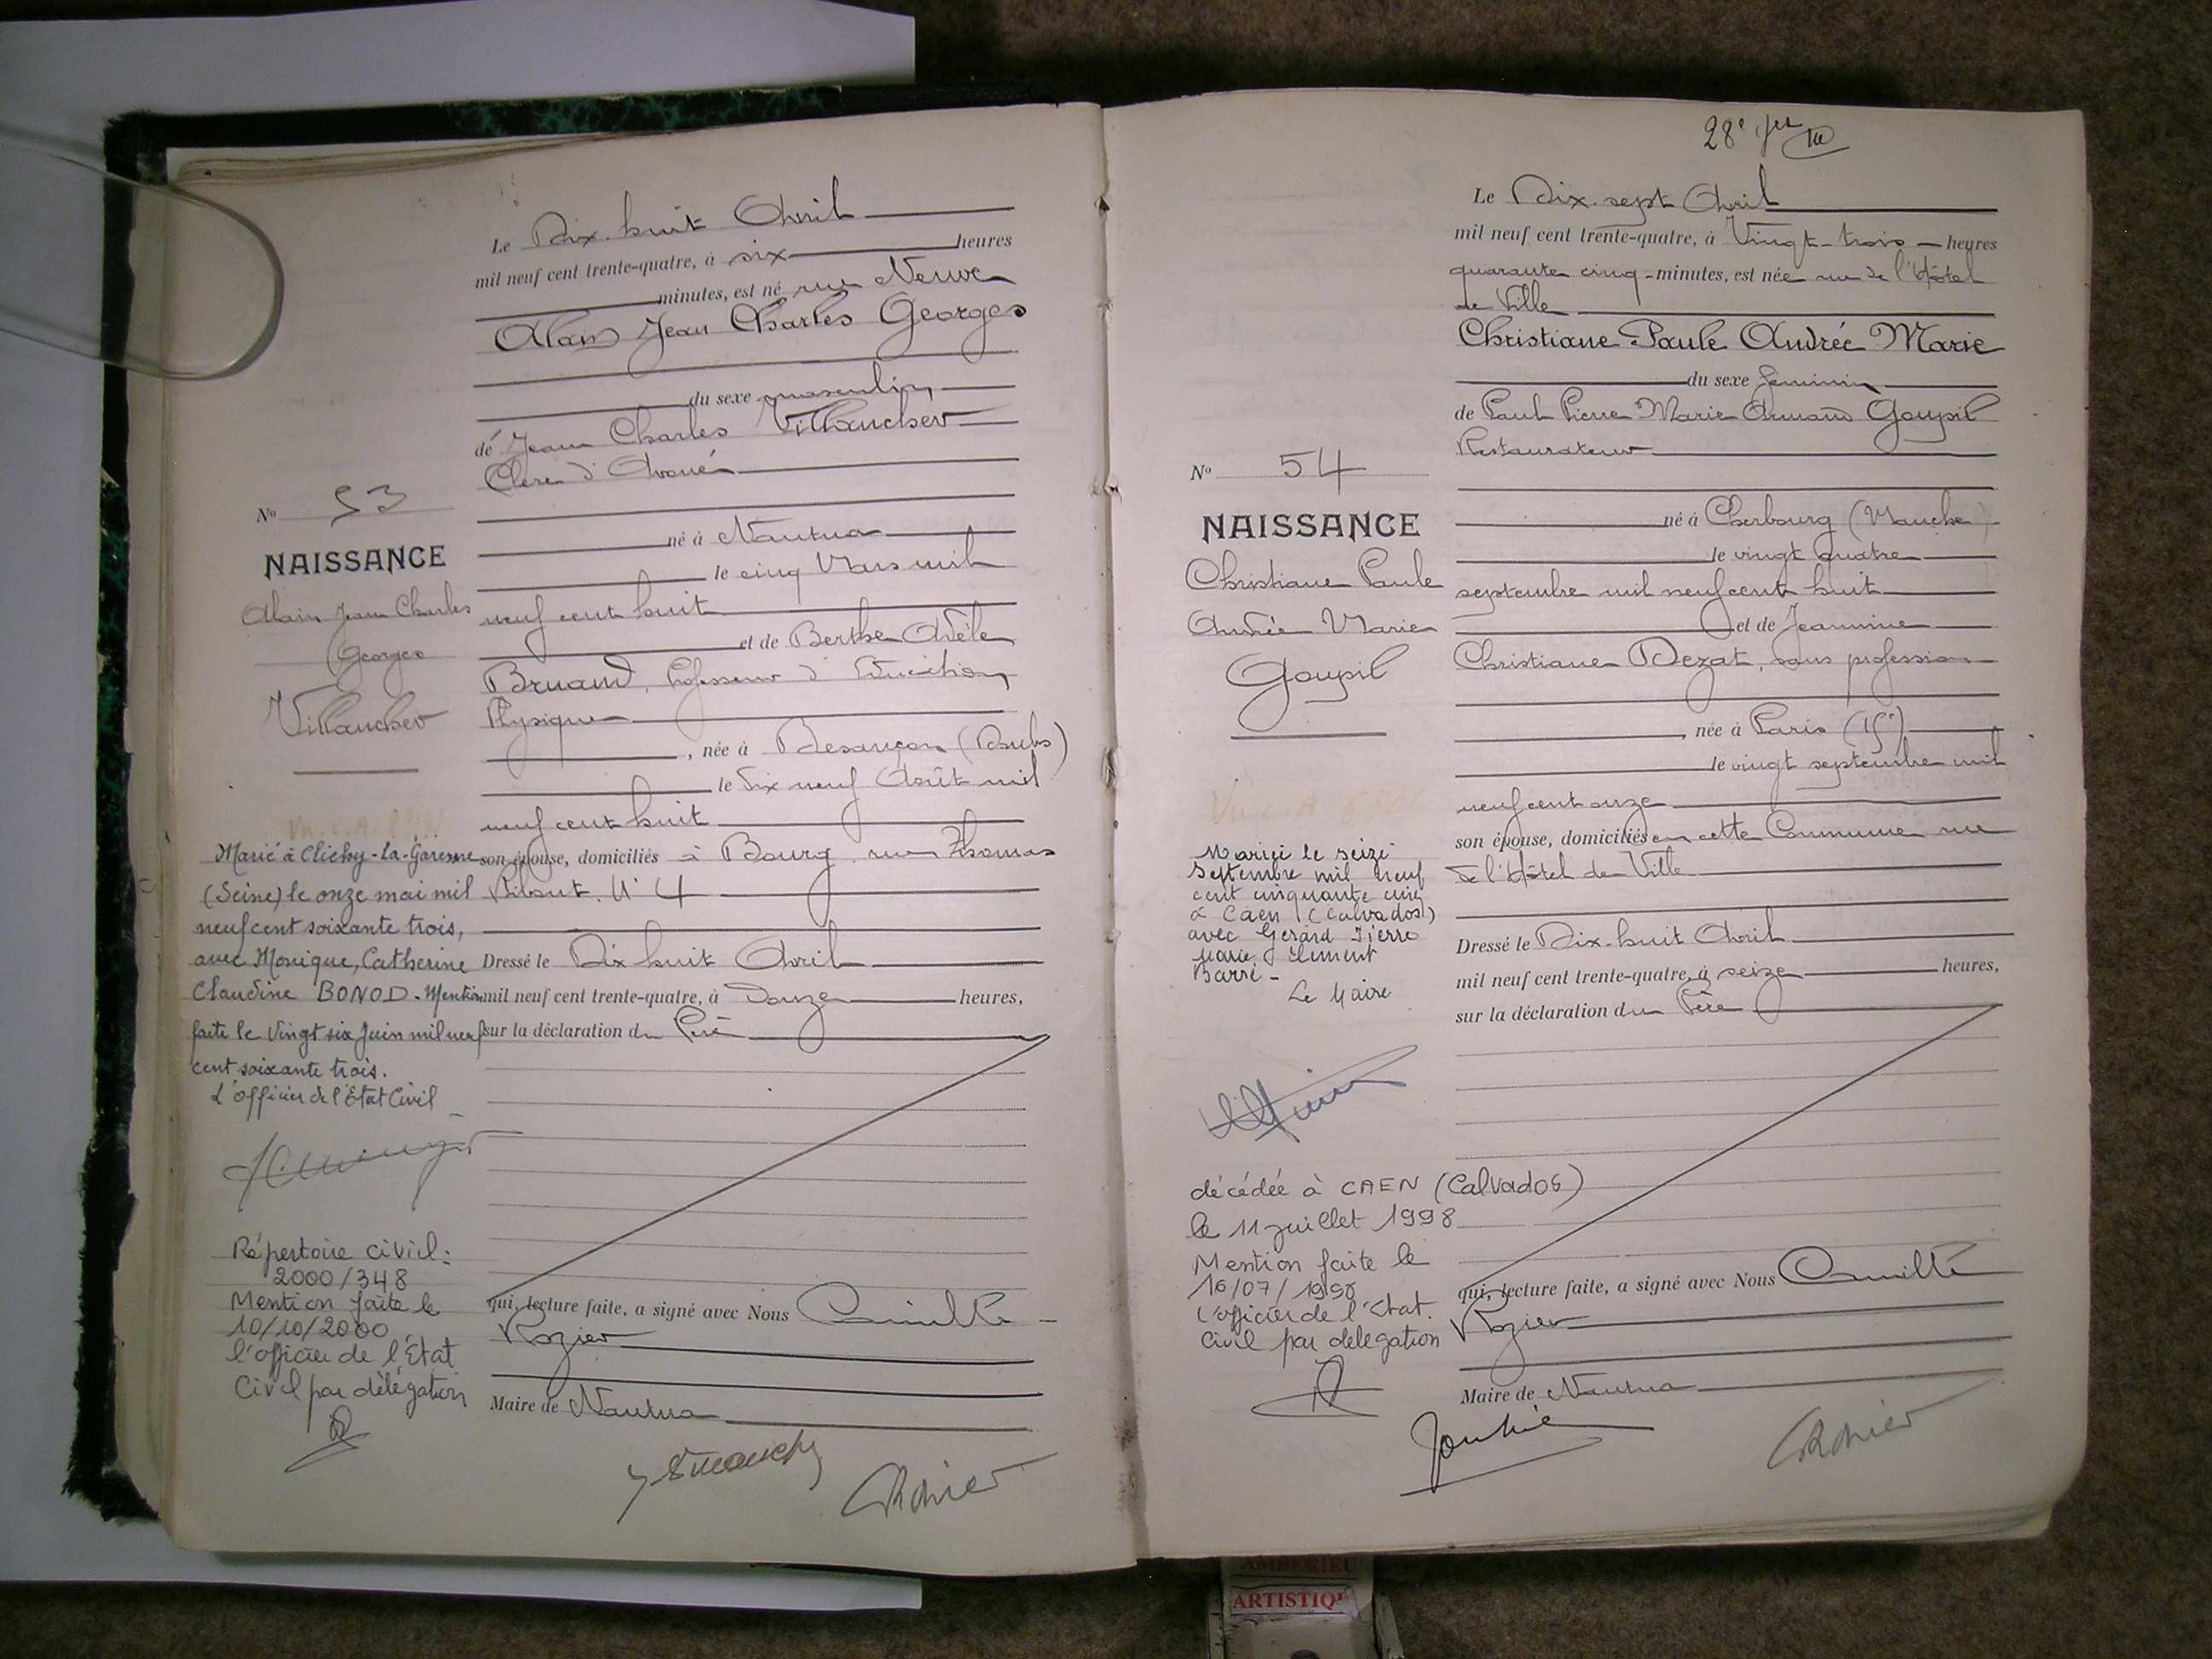 Le Dix-huit Avril
mil neuf cent trente-quatre, à six heures
minutes, est né rue Neuve
Alain Jean Charles Georges
du sexe masculin
de Jean Charles Villanchev
Clerc d'Avoué
né à Nantua
le cinq Mars mil
neuf cent huit
et de Berthe Adèle
Bruand, Professeur d'Education
Physique
, née à Besançon (Doubs)
le Dix neuf Août mil
neuf cent huit
son épouse, domiciliés à Bourg, rue Thomas
Riboud. N° 4
Dressé le Dix huit Avril
mil neuf cent trente-quatre, à Douze heures,
sur la déclaration du Père
qui, lecture faite, a signé avec Nous Camille
Rozier
Maire de Nantua
N° 53
NAISSANCE
Alain Jean Charles
Georges
Villanchev
Marié à Clichy-La-Garenne
(Seine) le onze mai mil
neuf cent soixante trois,
avec Monique, Catherine
Claudine BONOD. Mention
faite le Vingt six Juin mil neuf
cent soixante trois.
L'officier de l'Etat Civil
Répertoire civil:
2000/348
Mention faite le
10/10/2000
l'officier de l'Etat
Civil par délégation
28e
Le Dix-sept Avril
mil neuf cent trente-quatre, à Vingt-trois heures
quarante cinq minutes, est née rue de l'Hôtel
de Ville
Christiane Paule Andrée Marie
du sexe féminin
de Paul Pierre Marie Armand Goupil
Restaurateur
né à Cherbourg (Manche)
le vingt quatre
septembre mil neuf cent huit
et de Jeannine
Christiane Dezat, sans profession
, née à Paris
le vingt septembre mil
neuf cent onze
son épouse, domiciliés en cette Commune rue
de l'Hôtel de Ville
Dressé le Dix-huit Avril
mil neuf cent trente-quatre, à seize heures,
sur la déclaration du Père
qui, lecture faite, a signé avec Nous Camille
Rozier
Maire de Nantua
N° 54
NAISSANCE
Christiane Paule
Andrée Marie
Goupil
Mariée le seize
Septembre mil neuf
cent cinquante cinq
à Caen (Calvados)
avec Gérard Pierre
Marie Clément
Barré -
Le Maire
décédée à CAEN (Calvados)
le 11 juillet 1998
Mention faite le
16/07/1998
L'officier de l'Etat
Civil par délégation
AMBERIEU
ARTISTIQ